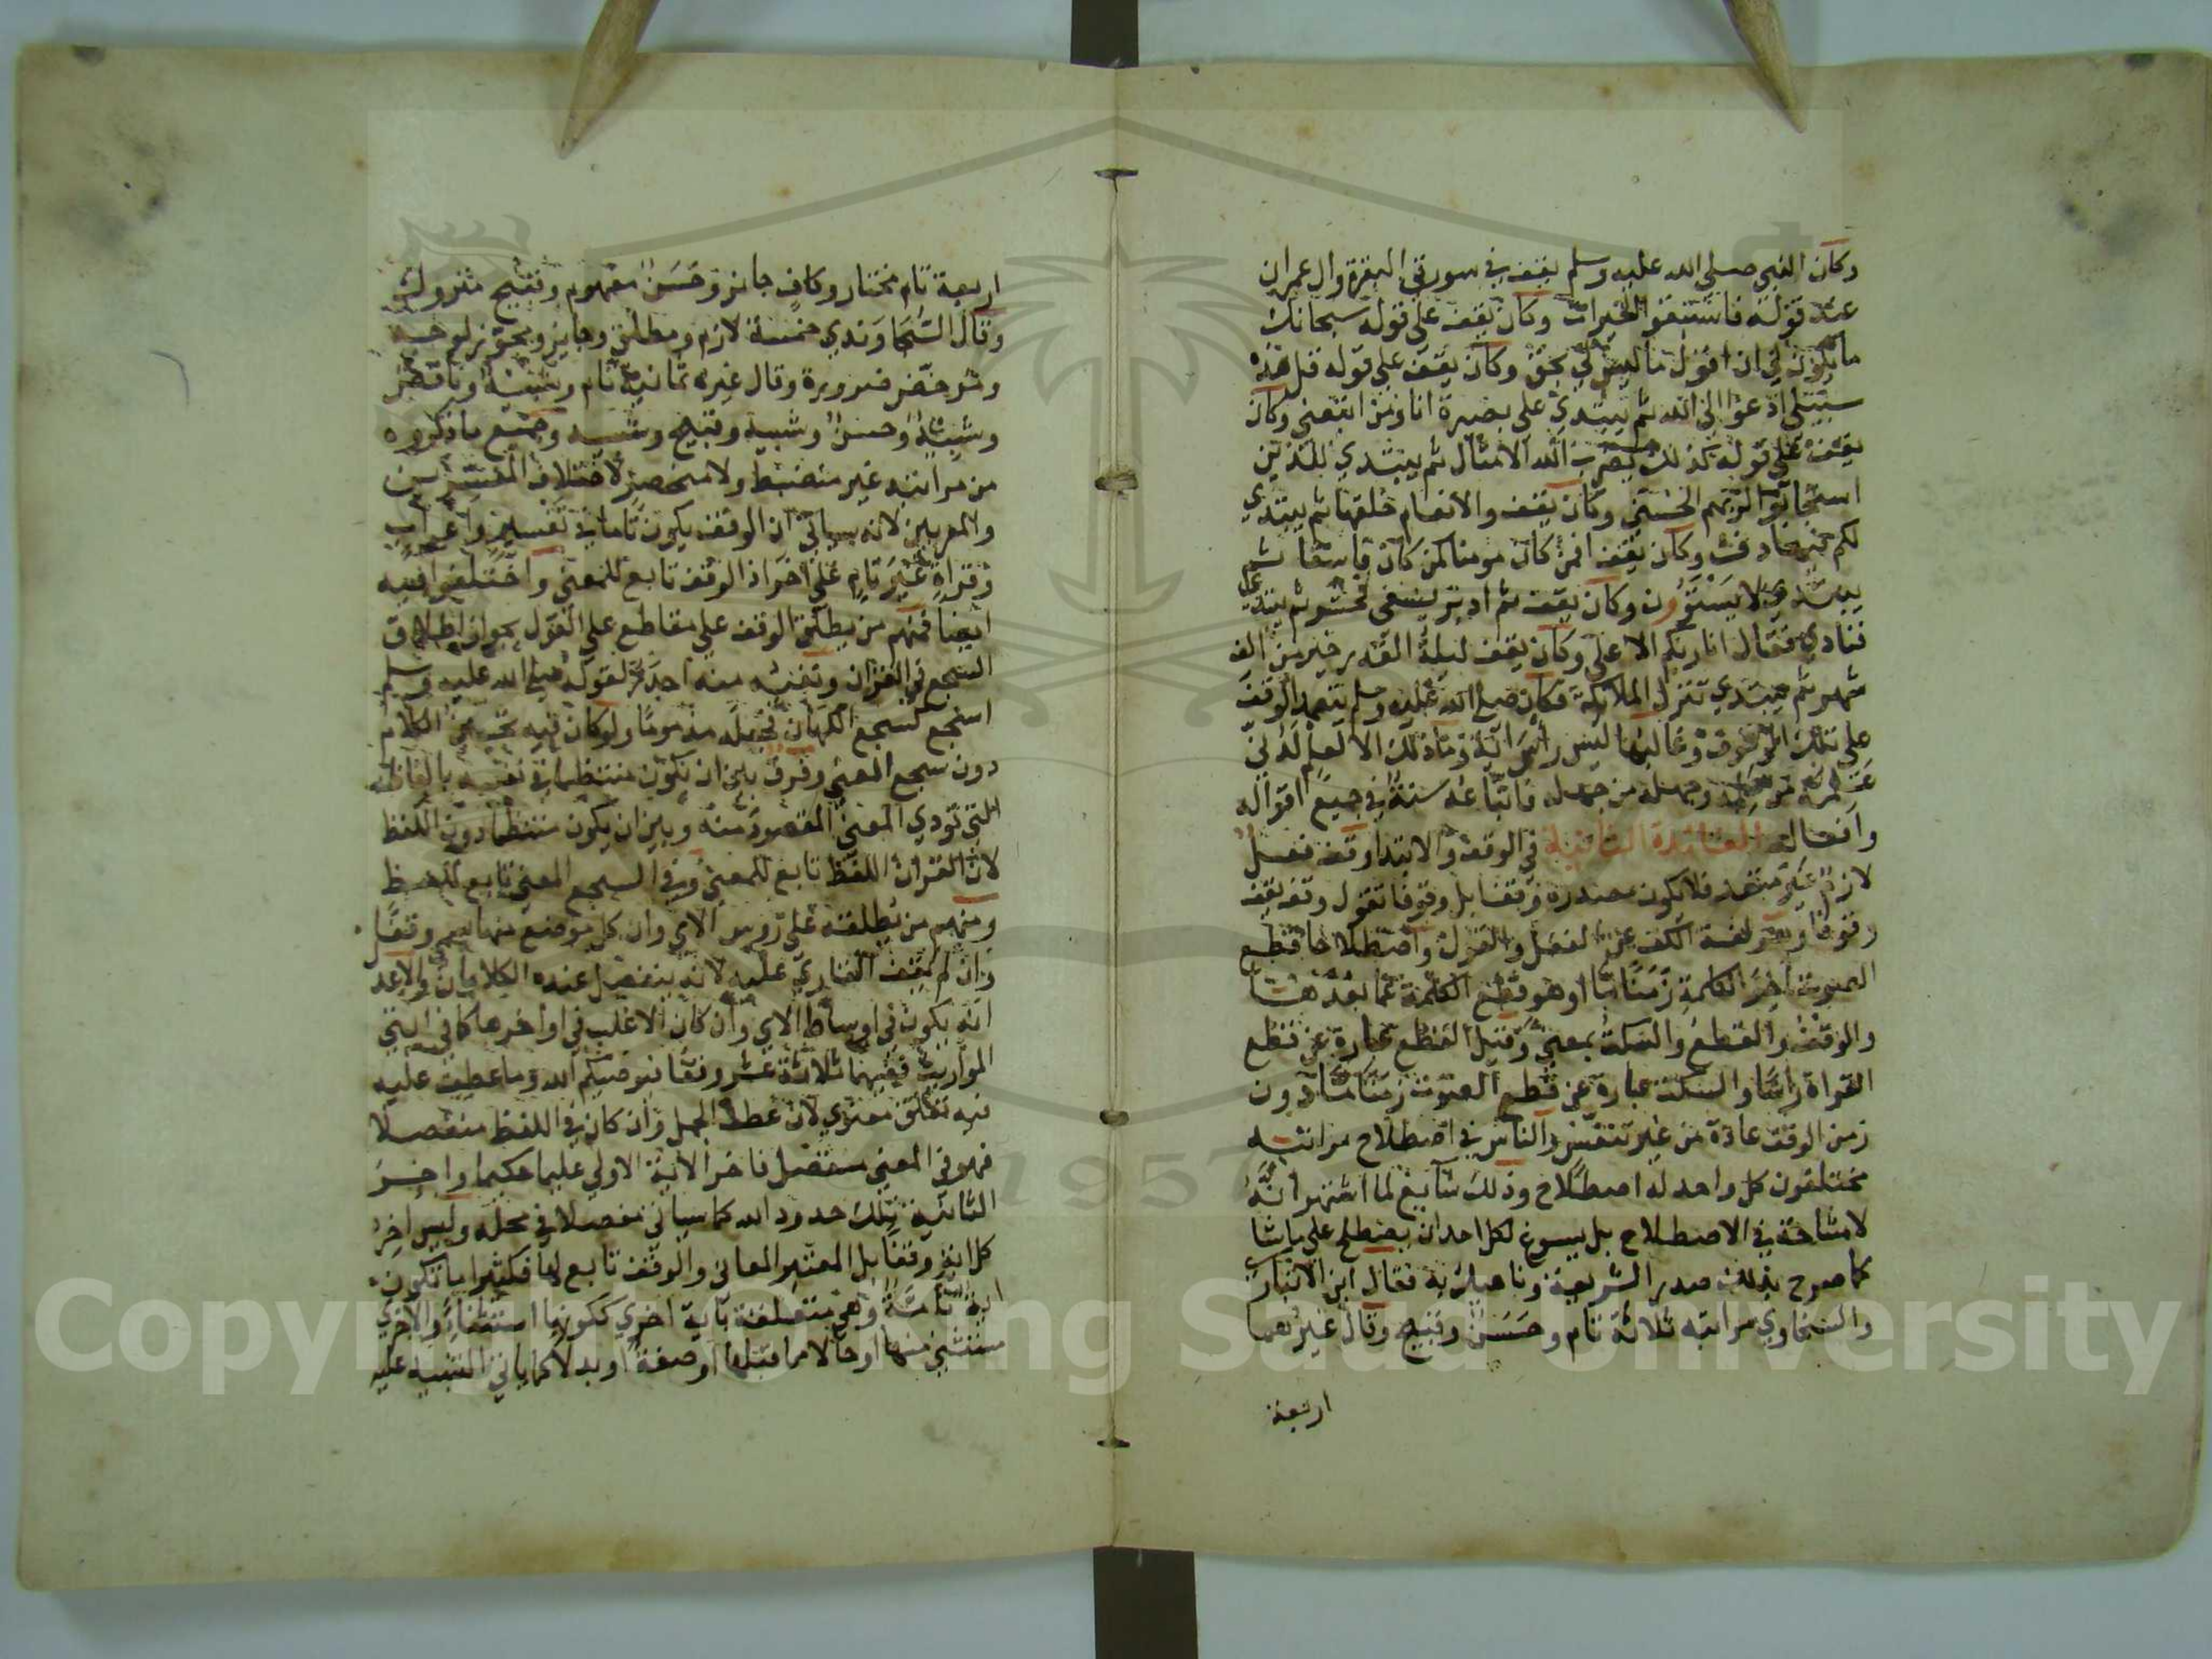 وكان النبي صلى الله عليه وسلم يقف في سورتي البقرة وال عمران
عند قوله فاستبقوا الخيرات وكان يقف على قوله سبحانك
ما يكون لي ان اقول ما ليس لي بحق وكان يقف على قوله قل هذه
سبيلي ادعوا الى الله ثم يبتدي على بصيرة انا ومن اتبعني وكان
يقف على قوله كذلك يضرب الله الامثال ثم يبتدي للذين
استجابوا لربهم الحسنى وكان يقف والانعام خلقها ثم يبتدي
لكم فيها دفء وكان يقف افمن كان مومنا كمن كان فاسقا ثم
يبتدي لا يستوون وكان يقف ثم ادبر يسعى فحشر ثم يبتدي
فنادي فقال انا ربكم الاعلى وكان يقف ليلة القدر خير من الف
شهر ثم يبتدي تنزل الملائكة فكان صلى الله عليه وسلم يتعمد الوقف
على تلك الوقوف وغالبها ليس راس اية وما ذلك الا لعلم لدني
علمه من علمه وجهله من جهله فاتباعه سنة في جميع اقواله
وافعاله الفائدة الثانية في الوقف والابتدا وقف فعل
لازم غير متعد فلا يكون مصدره وقفا بل وقوفا تقول وقف يقف
وقوفا وهو لغة الكف عن الفعل والقول واصطلاحا قطع
الصوت اخر الكلمة زمنا ما او هو قطع الكلمة عما بعدها
والوقف والقطع والسكت بمعنى وقيل القطع عبارة عن قطع
القراة راسا والسكت عبارة عن قطع الصوت زمنا ما دون
زمن الوقف عادة من غير تنفس والناس في اصطلاح مراتبه
مختلفون كل واحد له اصطلاح وذلك شايع لما اشتهر انه
لا مشاحة في الاصطلاح بل يسوغ لكل احد ان يصطلح على ما شا
كما صرح بذلك صدر الشريعة وناهيك به فقال ابن الانباري
والسخاوي مراتبه ثلاثة تام وحسن وقبيح وقال غيرهما
اربعة
اربعة تام مختار وكاف جايز وحسن مفهوم وقبيح متروك
وقال السجاوندي خمسة لازم ومطلق وجايز ومجوز لوجه
ومرخص ضرورة وقال غيره ثمانية تام وشبيه وناقص
وشبيه وحسن وشبيه وقبيح وشبيه وجميع ما ذكروه
من مراتبه غير منضبط ولا منحصر لاختلاف المفسرين
والمعربين لانه سياتي ان الوقف يكون تاما في تفسير واعراب
وقراة غير تام على اخر اذ الوقف تابع للمعنى واختلفوا فيه
ايضا فمنهم من يطلق الوقف على مقاطع على القول بجواز اطلاق
السجع في القران ونفيه منه اجدر لقوله صلى الله عليه وسلم
اسجع كسجع الكهان فجعله مذموما ولو كان فيه تحسين الكلام
دون سجع المعنى وفرق بين ان يكون منتظما في نفسه بالفاظه
التي تودي المعنى المقصود منه وبين ان يكون منتظما دون اللفظ
لان القران اللفظ تابع للمعنى وفي السجع المعنى تابع للفظ
ومنهم من يطلقه على روس الاي وان كل موضع منها يسمى وقفا
وان لم يقف القاري عليه لانه ينفصل عنده الكلامان والاعدل
انه يكون في اوساط الاي وان كان الاغلب في اواخرها كما في ايتي
المواريث ففيهما ثلاثة عشر وقفا فيوصيكم الله وما عطف عليه
فيه تعلق معنوي لان عطف الجمل وان كان في اللفظ منفصلا
فهو في المعنى متصل فاخر الاية الاولى عليما حكيما واخر
الثانية تلك حدود الله كما سياتي مفصلا في محله وليس اخر
كل اية وقفا بل المعتبر المعاني والوقف تابع لها فكثيرا ما تكون
اية تامة وهي متعلقة باية اخري ككونها استثناء والاخري
مستثنى منها او حالا مما قبلها او صفة او بدلا كما ياتي التنبيه عليه